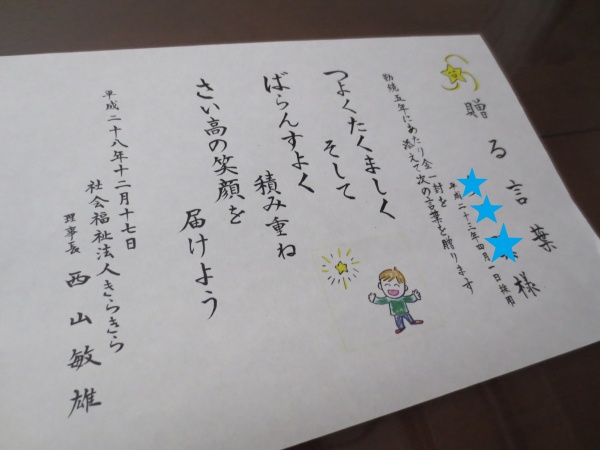 贈る言葉
様
平成二十三年四月一日採用
勤続五年にあたり金一封を
添えて次の言葉を贈ります
つよくたくましく
そして
ばらんすよく
積み重ね
さい高の笑顔を
届けよう
平成二十八年十二月十七日
社会福祉法人きらきら
理事長 西山敏雄